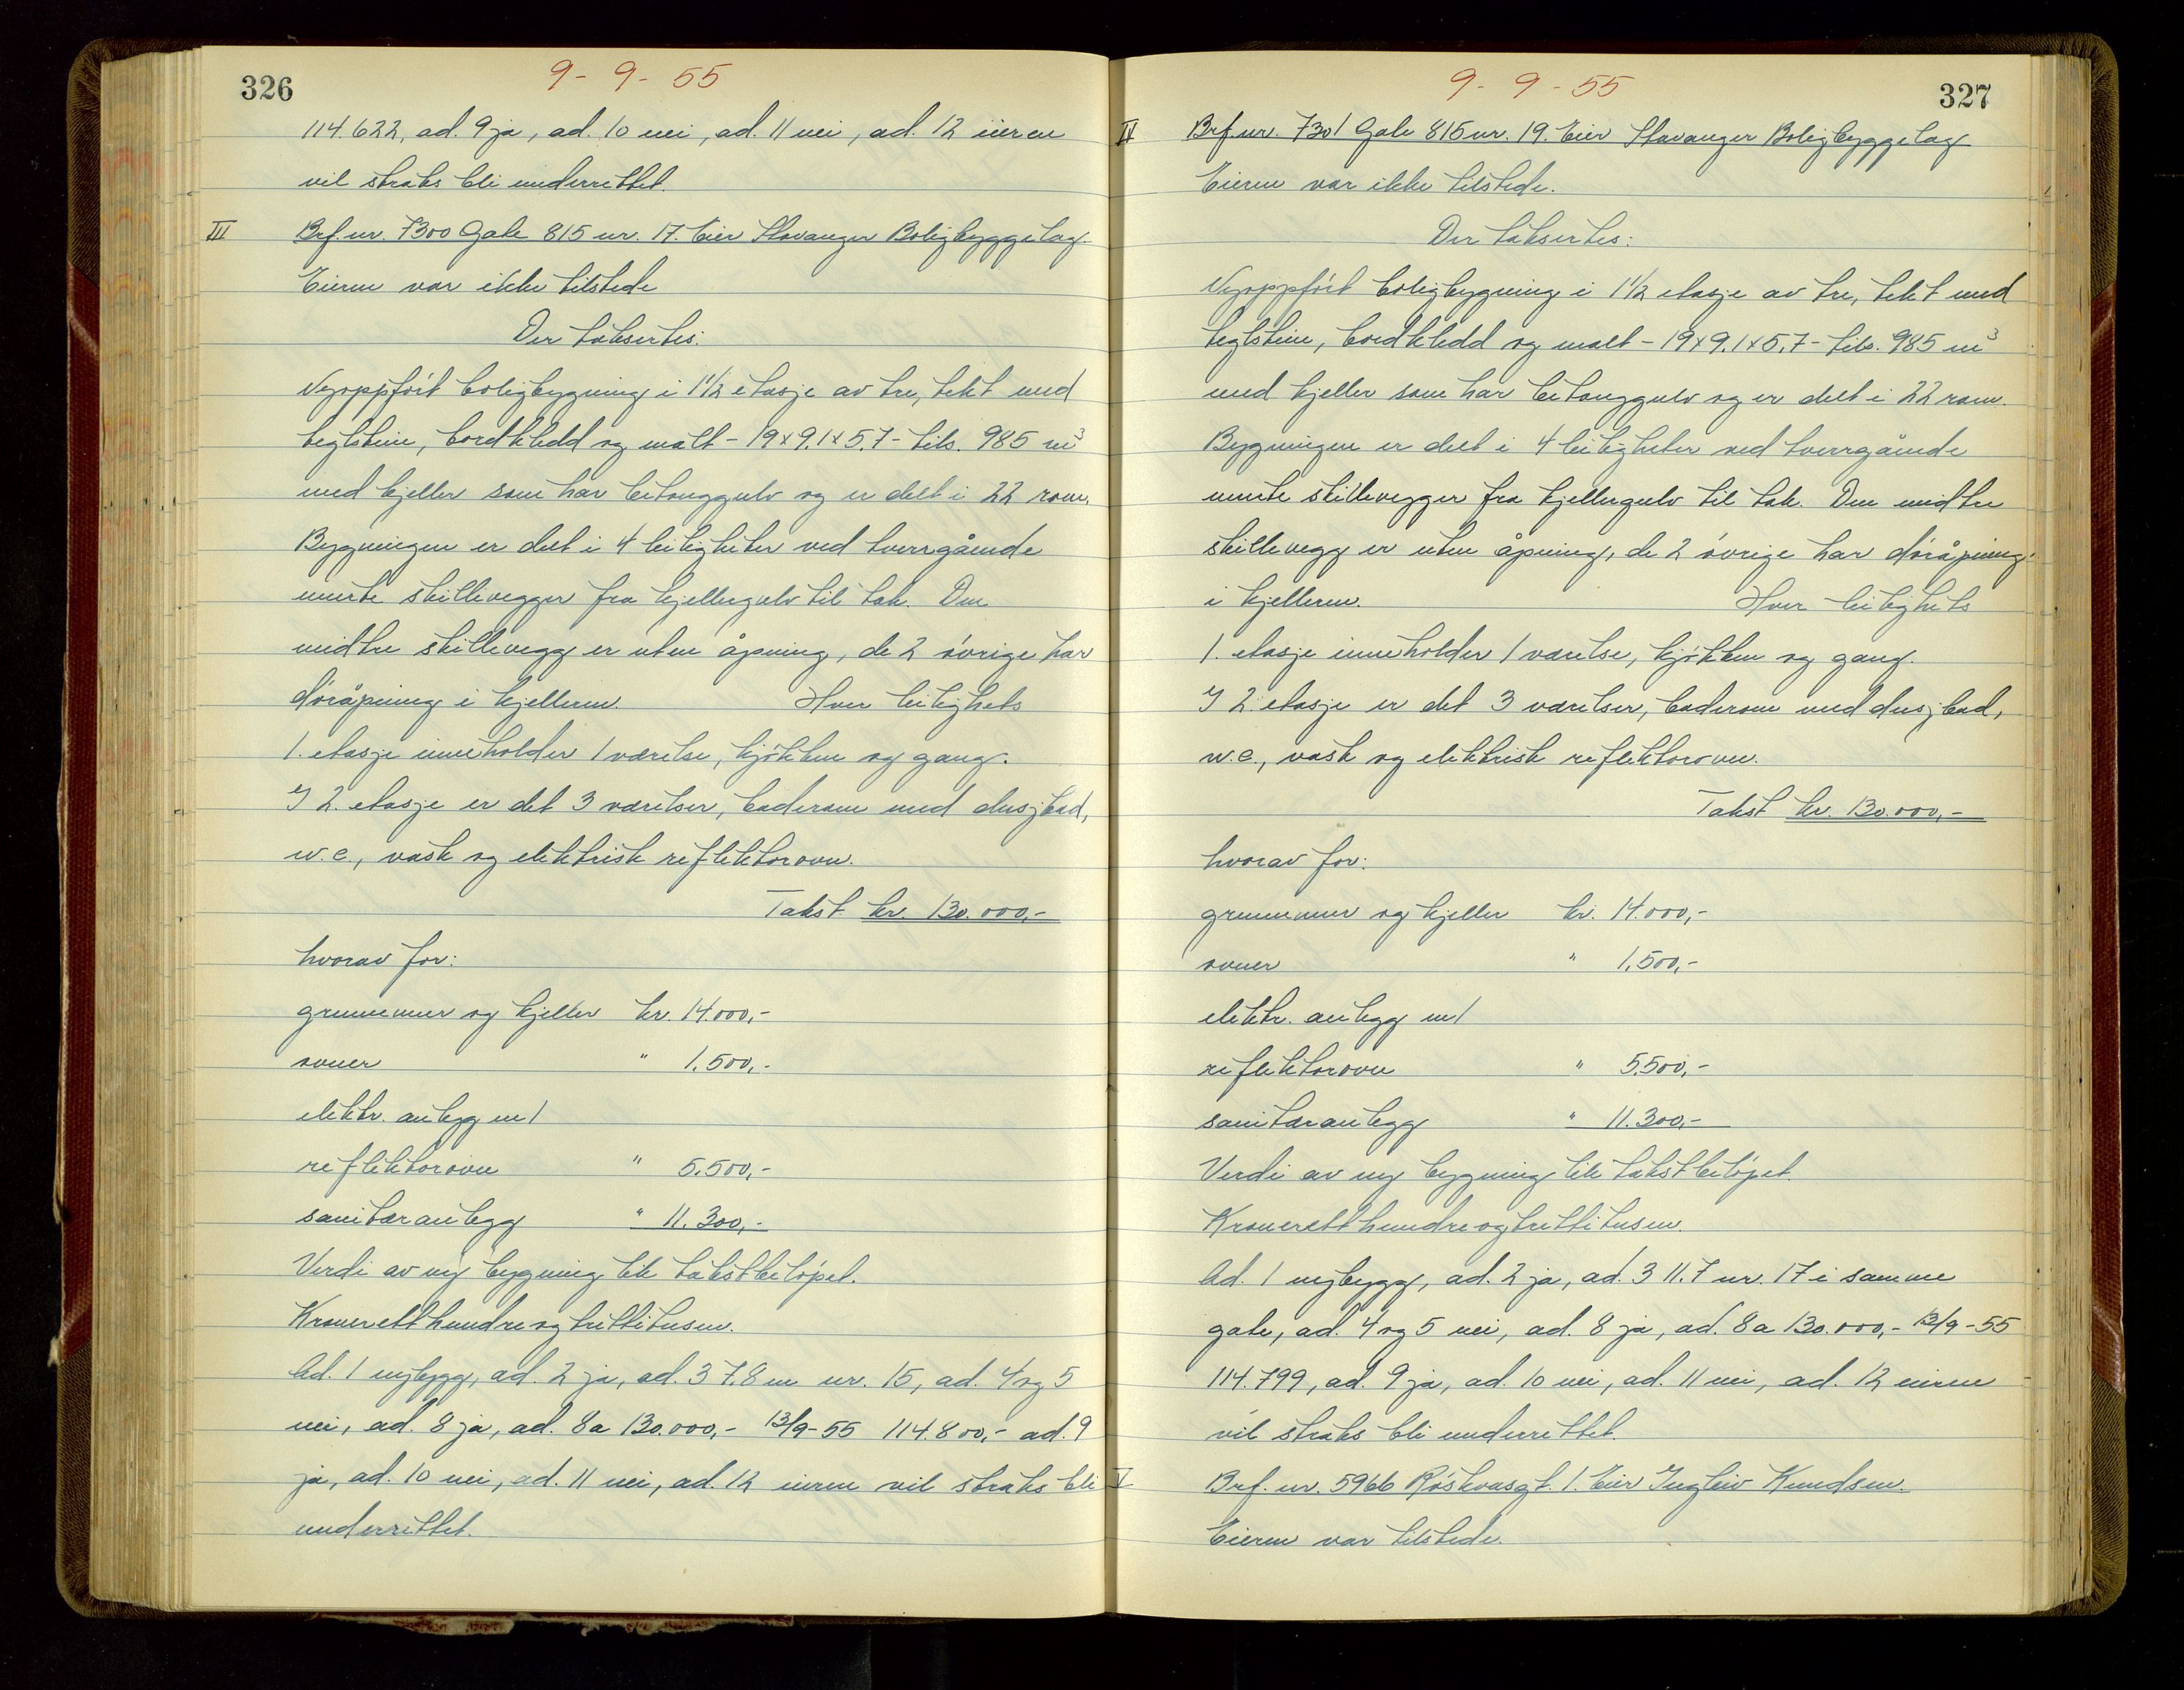 326
9-9-55
114.622, ad. 9 ja, ad. 10 nei, ad. 11 nei, ad. 12 eieren
vil straks bli underrettet.
III Brf. nr. 7300 Gate 815 nr. 17. Eier Stavanger Boligbyggelag.
Eieren var ikke tilstede
Der taksertes:
Nyoppført boligbygning i 1 1/2 etasje av tre, tekt med
teglstein, bordkledd og malt - 19x9.1x5.7 - tils. 985 m³
med kjeller som har betonggulv og er delt i 22 rom.
Bygningen er delt i 4 leiligheter ved tverrgående
murte skillevegger fra kjellergulv til tak. Den
midtre skillevegg er uten åpning, de 2 øvrige har
døråpning i kjelleren. Hver leilighets
1. etasje inneholder 1 værelse, kjøkken og gang.
I 2. etasje er det 3 værelser, baderom med dusjbad,
w.c., vask og elektrisk reflektorovn.
Takst kr. 130.000,-
hvorav for:
grunnmur og kjeller kr. 14.000,-
ovner " 1.500,-
elektr. anlegg m/
reflektorovn " 5.500,-
sanitæranlegg " 11.300,-
Verdi av ny bygning lik takstbeløpet.
Kroneretthundreogtrettitusen.
Ad. 1 nybygg, ad. 2 ja, ad. 3 7.8 m nr. 15, ad. 4 og 5
nei, ad. 8 ja, ad. 8a 130.000,- 13/9-55 114.800,- ad. 9
ja, ad. 10 nei, ad. 11 nei, ad. 12 eieren vil straks bli
underrettet.
327
9-9-55
IV Brf. nr. 7301 Gate 815 nr. 19. Eier Stavanger Boligbyggelag
Eieren var ikke tilstede.
Der taksertes:
Nyoppført boligbygning i 1 1/2 etasje av tre, tekt med
teglstein, bordkledd og malt - 19x9.1x5.7 - tils. 985 m³
med kjeller som har betonggulv og er delt i 22 rom.
Bygningen er delt i 4 leiligheter ved tverrgående
murte skillevegger fra kjellergulv til tak. Den midtre
skillevegg er uten åpning, de 2 øvrige har døråpning
i kjelleren. Hver leilighets
1. etasje inneholder 1 værelse, kjøkken og gang.
I 2. etasje er det 3 værelser, baderom med dusjbad,
w.c., vask og elektrisk reflektorovn.
Takst kr. 130.000,-
hvorav for:
grunnmur og kjeller kr. 14.000,-
ovner " 1.500,-
elektr. anlegg m/
reflektorovn " 5.500,-
sanitæranlegg " 11.300,-
Verdi av ny bygning lik takstbeløpet.
Kroneretthundreogtrettitusen.
Ad. 1 nybygg, ad. 2 ja, ad. 3 11.7 nr. 17 i samme
gate, ad. 4 og 5 nei, ad. 8 ja, ad. 8a 130.000,- 13/9-55
114.799, ad. 9 ja, ad. 10 nei, ad. 11 nei, ad. 12 eieren
vil straks bli underrettet.
V Brf. nr. 5966 Røskvasgt. 1. Eier Ingleiv Knudsen.
Eieren var tilstede.